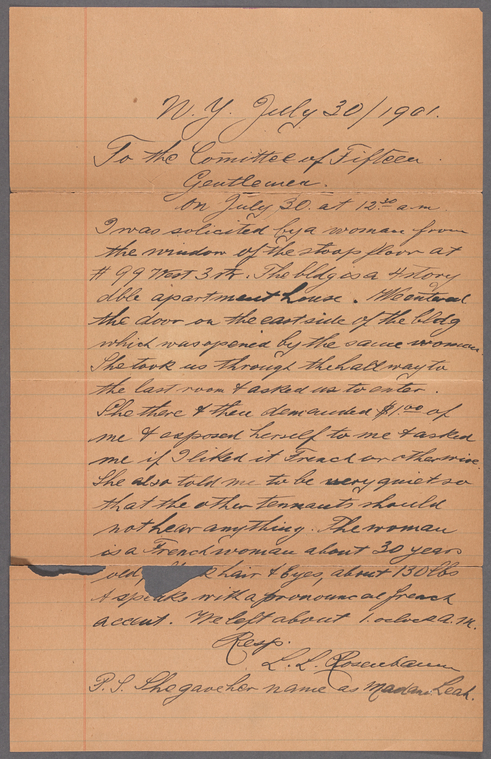 N. Y. July 30/1901.
To the Comittee of Fifteen.
Gentlemen.
On July 30. at 12.30 a m
I was solicited by a woman from
the window of the stoop floor at
# 99 West 3rd. The bldg is a 4 story
dble apartment house. We entered
the door on the east side of the bldg
which was opened by the same woman.
She took us through the hallway to
the last room & asked us to enter.
She there & then demanded $1.00 of
me & exposed herself to me & asked
me if I liked it French or otherwise.
She also told me to be very quiet so
that the other tennants should
not hear anything. The woman
is a French woman about 30 years
old, hair & Eyes, about 130 lbs
& speaks with a pronounced french
accent. We left about 1. oclock a. m.
Resp.
L. L. Rosenbaum
P. S. She gave her name as Madam Leah.